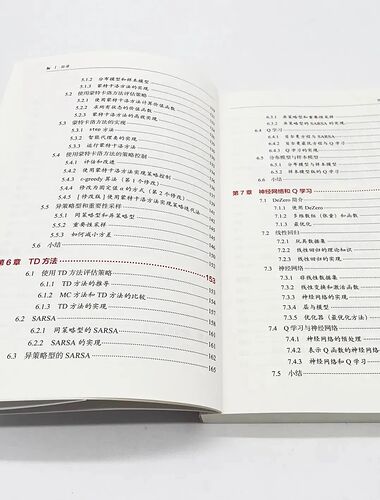 目录
5.1.2 分布模型和样本模型
5.1.3 蒙特卡洛方法的实现
5.2 使用蒙特卡洛方法评估策略
5.2.1 使用蒙特卡洛方法计算价值函数
5.2.2 求所有状态的价值函数
5.2.3 蒙特卡洛方法的高效实现
5.3 蒙特卡洛方法的实现
5.3.1 step 方法
5.3.2 智能代理类的实现
5.3.3 运行蒙特卡洛方法
5.4 使用蒙特卡洛方法的策略控制
5.4.1 评估和改进
5.4.2 使用蒙特卡洛方法实现策略控制
5.4.3 ε-greedy 算法(第 1 个修改)
5.4.4 修改为固定值 α 的方式(第 2 个修改)
5.4.5 [修改版] 使用蒙特卡洛方法实现策略迭代法
5.5 异策略型和重要性采样
5.5.1 同策略型和异策略型
5.5.2 重要性采样
5.5.3 如何减小方差
5.6 小结
第 6 章 TD 方法 153
6.1 使用 TD 方法评估策略
6.1.1 TD 方法的推导
6.1.2 MC 方法和 TD 方法的比较
6.1.3 TD 方法的实现
6.2 SARSA
6.2.1 同策略型的 SARSA 162
6.2.2 SARSA 的实现 162
6.3 异策略型的 SARSA 165
6.3.1 异策略和重要性采样
6.3.2 异策略型的 SARSA 的实现
6.4 Q 学习
6.4.1 贝尔曼方程与 SARSA
6.4.2 贝尔曼最优方程与 Q 学习
6.4.3 Q 学习的实现
6.5 分布模型与样本模型
6.5.1 分布模型与样本模型
6.5.2 样本模型版的 Q 学习
6.6 小结
第 7 章 神经网络和 Q 学习
7.1 DeZero 简介
7.1.1 使用 DeZero
7.1.2 多维数组(张量)和函数
7.1.3 最优化
7.2 线性回归
7.2.1 玩具数据集
7.2.2 线性回归的理论知识
7.2.3 线性回归的实现
7.3 神经网络
7.3.1 非线性数据集
7.3.2 线性变换和激活函数
7.3.3 神经网络的实现
7.3.4 层与模型
7.3.5 优化器(最优化方法)
7.4 Q 学习与神经网络
7.4.1 神经网络的预处理
7.4.2 表示 Q 函数的神经网络
7.4.3 神经网络和 Q 学习
7.5 小结